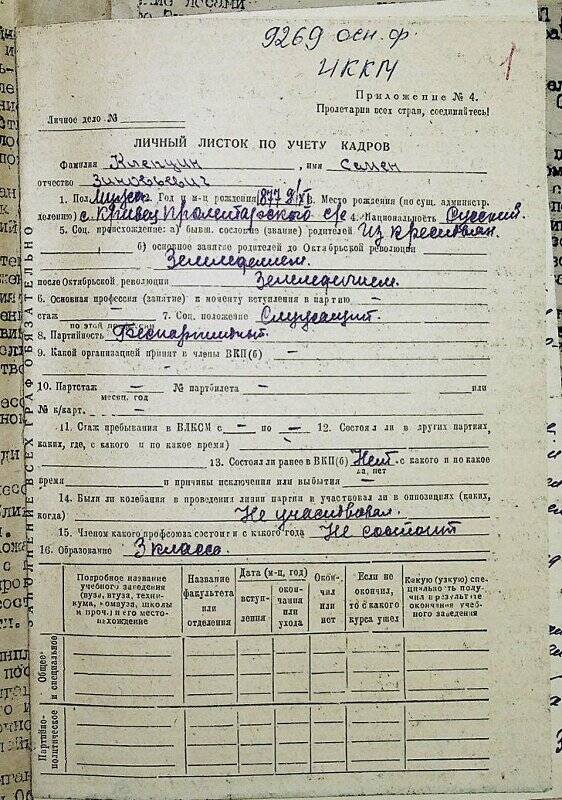 9269 осн. ф.
ИККМ
1
Приложение № 4.
Пролетарии всех стран, соединяйтесь!
Личное дело №
ЛИЧНЫЙ ЛИСТОК ПО УЧЕТУ КАДРОВ
Фамилия Клепцин, имя Семен
отчество Зиновьевич
1. Пол Мужск. 2. Год и м-ц рождения 1877 3. Место рождения (по сущ. админстр.
делению) с. Кривец Пролетарского с/с 4. Национальность Русский.
5. Соц. происхождение: а) бывш. сословие (звание) родителей Из крестьян.
б) основное занятие родителей до Октябрьской революции
Земледелием.
после Октябрьской революции Земледелием.
6. Основная профессия (занятие) к моменту вступления в партию —
стаж — 7. Соц. положение Служащий.
по этой профессии
8. Партийность Беспартийный.
9. Какой организацией принят в члены ВКП(б) —
10. Партстаж — № партбилета — или
месяц, год
№ к/карт. —
11. Стаж пребывания в ВЛКСМ с — по — 12. Состоял ли в других партиях,
каких, где, с какого и по какое время)
13. Состоял ли ранее в ВКП(б) Нет с какого и по какое
да, нет
время — и причины исключения или выбытия —
14. Были ли колебания в проведении линии партии и участвовал ли в оппозициях (каких,
когда) Не участвовал.
15. Членом какого профсоюза состоит и с какого года Не состоит
16. Образование 3 класса.
ЗАПОЛНЕНИЕ ВСЕХ ГРАФ ОБЯЗАТЕЛЬНО
Подробное название учебного заведения (вуза, втуза, техникума, комвуза, школы и проч.) и его местонахождение
Название факультета или отделения
Дата (м-ц, год)
вступления
окончания или ухода
Окончил или нет
Если не окончил, то с какого курса ушел
Какую (узкую) специальность получил в результате окончания учебного заведения
Общее и специальное
Партийно-политическое